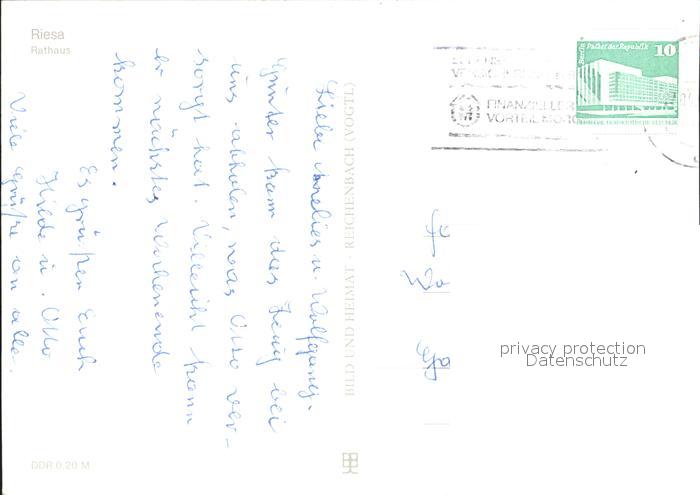 Riesa
Rathaus
Liebe Annelies u. Wolfgang.
Günter kann das Zeug bei
uns abholen, was Otto ver-
sorgt hat. Vielleicht kann
er nächstes Wochenende
kommen.
Es grüßen Euch
Hilde u. Otto
Viele Grüße an alle.
BILD UND HEIMAT · REICHENBACH (VOGTL)
DDR 0,20 M
Berlin Palast der Republik 10
FINANZIELLER
VORTEIL
privacy protection
Datenschutz